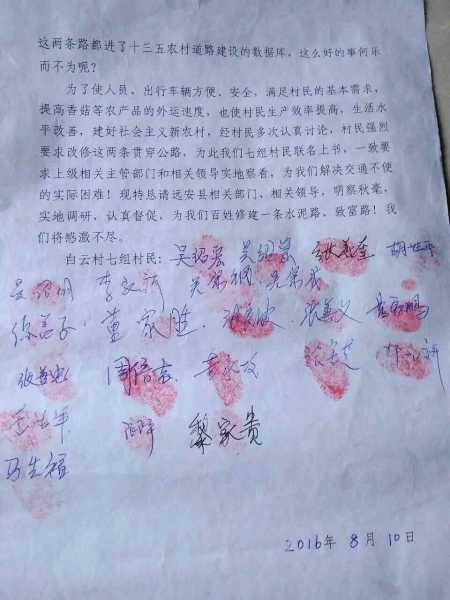 这两条路都进了十三五农村道路建设的数据库，这么好的事何乐
而不为呢？
为了使人员、出行车辆方便、安全，满足村民的基本需求，
提高香菇等农产品的外运速度，也使村民生产效率提高，生活水
平改善，建好社会主义新农村，经村民多次认真讨论，村民强烈
要求改修这两条贯穿公路，为此我们七组村民联名上书，一致要
求上级相关主管部门和相关领导实地察看，为我们解决交通不便
的实际困难！现特恳请远安县相关部门、相关领导，明察秋毫，
实地调研，认真督促，为我们百姓修建一条水泥路、致富路！我
们将感激不尽。
白云村七组村民：
董家胜
张善义
周倍东
黎家贵
马先福
2016年 8月 10日